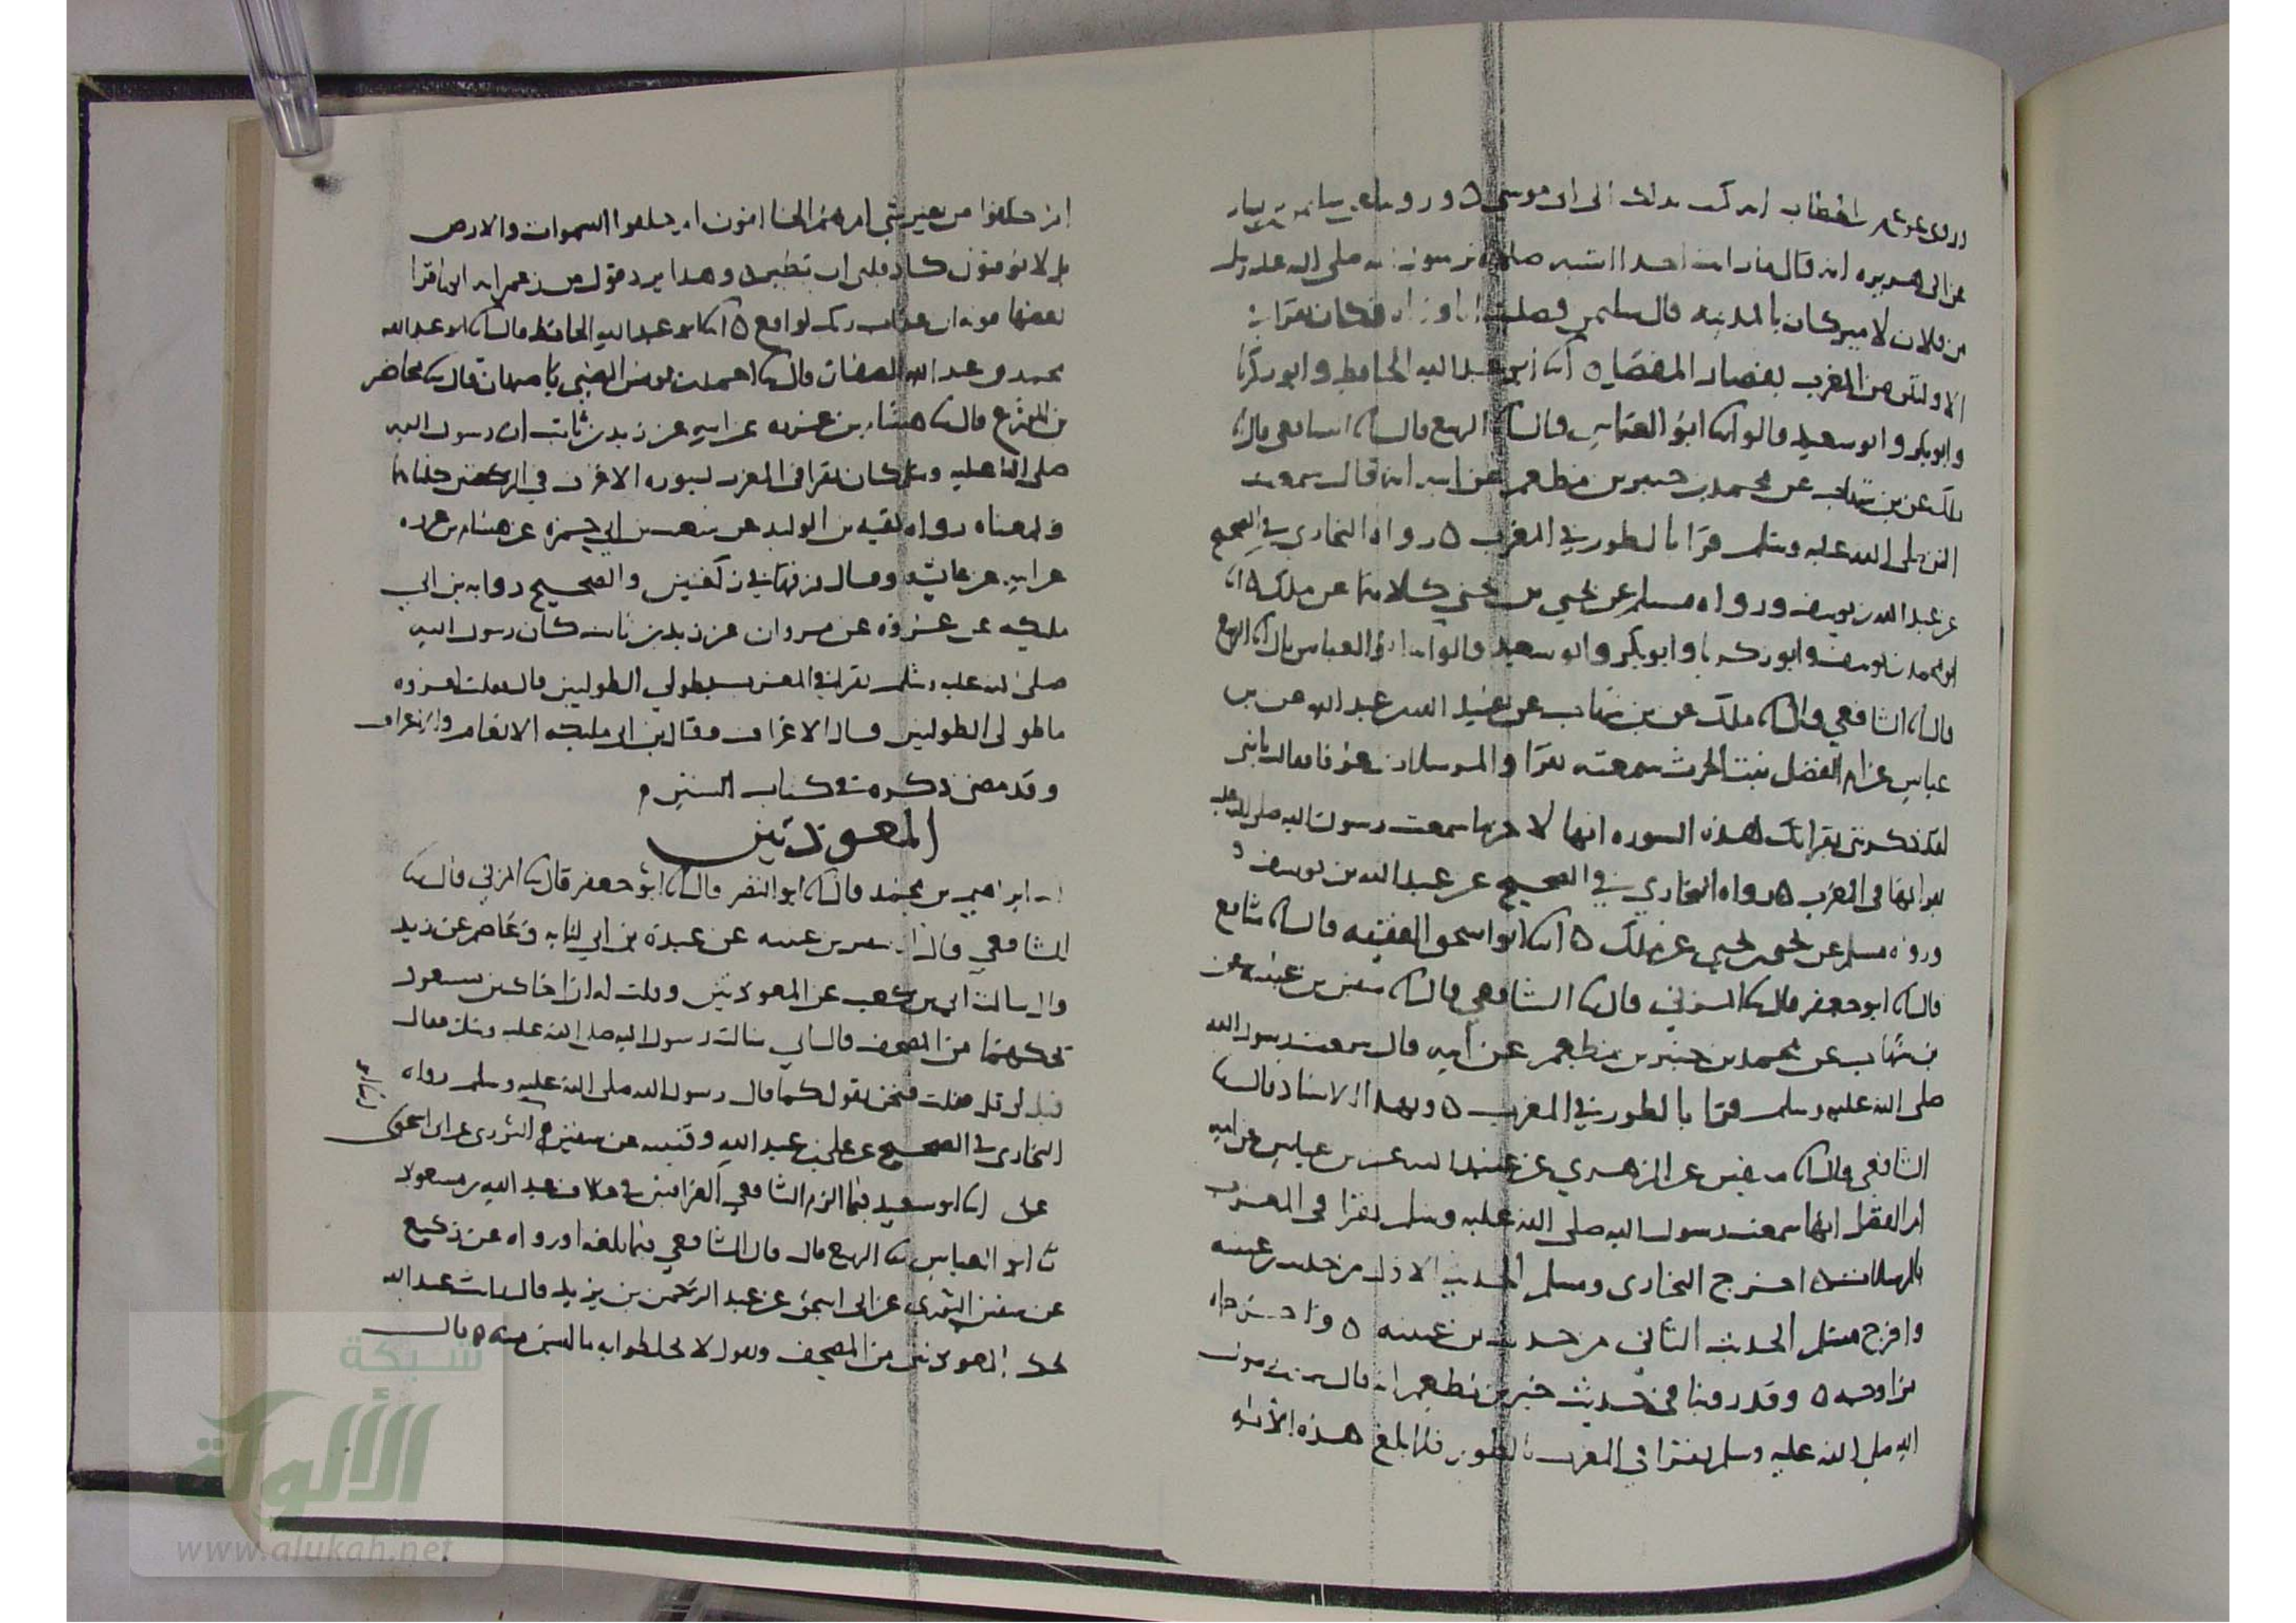 وروى عن عمر بن الخطاب انه كتب بذلك الى ابي موسى ٥ وروينا عن سليمن بن يسار
عن ابي هريره انه قال ما رايت احدا اشبه صلاة برسول الله صلى الله عليه وسلم
من فلان لامير كان بالمدينه قال سليمن فصليت انا وراه فكان يقرا في
الاوليين من المغرب بقصار المفصل ٥ ابو عبد الله الحافظ وابو زكريا
وابو بكر وابو سعيد قالوا ابو العباس قال الربيع قال الشافعي قال
ملك عن بن شهاب عن محمد بن جبير بن مطعم عن ابيه انه قال سمعت
النبي صلى الله عليه وسلم قرا بالطور في المغرب ٥ رواه البخاري في الصحيح
عن عبد الله بن يوسف ورواه مسلم عن يحيى بن يحيى كلاهما عن ملك ٥
ابو محمد بن يوسف وابو زكريا وابو بكر وابو سعيد قالوا ابو العباس قال الربيع
قال الشافعي قال ملك عن بن شهاب عن عبيد الله بن عبد الله عن بن
عباس عن ام الفضل بنت الحرث سمعته يقرا والمرسلات عرفا فقالت يا بني
لقد ذكرتني بقراتك هذه السوره انها لاخر ما سمعت رسول الله صلى الله عليه
يقرا بها في المغرب ٥ رواه البخاري في الصحيح عن عبد الله بن يوسف
ورواه مسلم عن يحيى بن يحيى عن ملك ٥ ابو اسحق الفقيه قال شافع
قال ابو جعفر قال المزني قال الشافعي قال سفين بن عيينه عن
بن شهاب عن محمد بن جبير بن مطعم عن ابيه قال سمعت رسول الله
صلى الله عليه وسلم قرا بالطور في المغرب ٥ وبهذا الاسناد قال
الشافعي قال سفين عن الزهري عن عبيد الله عن بن عباس عن امه
ام الفضل انها سمعت رسول الله صلى الله عليه وسلم يقرا في المغرب
بالمرسلات ٥ اخرج البخاري ومسلم الحديث الاول من حديث بن عيينه
واخرج مسلم الحديث الثاني من حديث بن عيينه ٥ واخرجاه
من اوجه ٥ وقد روينا في حديث جبير بن مطعم انه قال سمعت رسول
الله صلى الله عليه وسلم يقرا في المغرب بالطور فلما بلغ هذه الآيه
ام خلقوا من غير شي ام هم الخالقون ام خلقوا السموات والارض
بل لا يوقنون كاد قلبي ان يطير ٥ وهذا يرد قول من زعم انه انما قرا
بعضها قوله ان عذاب ربك لواقع ٥ ابو عبد الله الحافظ قال ابو عبد الله
محمد بن عبد الله الصفار قال احمد بن يونس الضبي باصبهان قال محاضر
بن المورع قال هشام بن عروه عن ابيه عن زيد بن ثابت ان رسول الله
صلى الله عليه وسلم كان يقرا في المغرب بسوره الاعراف في الركعتين كلتاهما
وبمعناه رواه بقيه بن الوليد عن شعيب بن ابي حمزه عن هشام بن عروه
عن ابيه عن عايشه وقال فرقها في ركعتين والصحيح روايه بن ابي
مليكه عن عروة عن مروان عن زيد بن ثابت كان رسول الله
صلى الله عليه وسلم يقرا في المغرب بطولي الطوليين قال فقلت لعروه
ما طولى الطوليين قال الاعراف فقال بن ابي مليكه الانعام والاعراف
وقد مضى ذكره في كتاب السنن
المعوذتين
ابراهيم بن محمد قال ابو النضر قال ابو جعفر قال المزني قال
الشافعي قال سفين بن عيينه عن عبدة بن ابي لبابه وعاصم عن زيد
قال سالت ابي بن كعب عن المعوذتين وقلت له ان اخاك بن مسعود
يحكهما من المصحف قال اني سالت رسول الله صلى الله عليه وسلم فقال
قيل لي قل فقلت فنحن نقول كما قال رسول الله صلى الله عليه وسلم رواه
البخاري في الصحيح عن علي بن عبد الله وقتيبه عن سفين الثوري عن ابي اسحق
على ابو سعيد فيما الزم الشافعي العراقيين في خلاف عبد الله بن مسعود
ابو العباس الربيع قال قال الشافعي فيما بلغه او رواه عن وكيع
عن سفين الثوري عن ابي اسحق عن عبد الرحمن بن يزيد قال رايت عبد الله
يحك المعوذتين من المصحف ويقول لا تخلطوا به ما ليس منه ٥ قال
شبكة
الألوكة
www.alukah.net